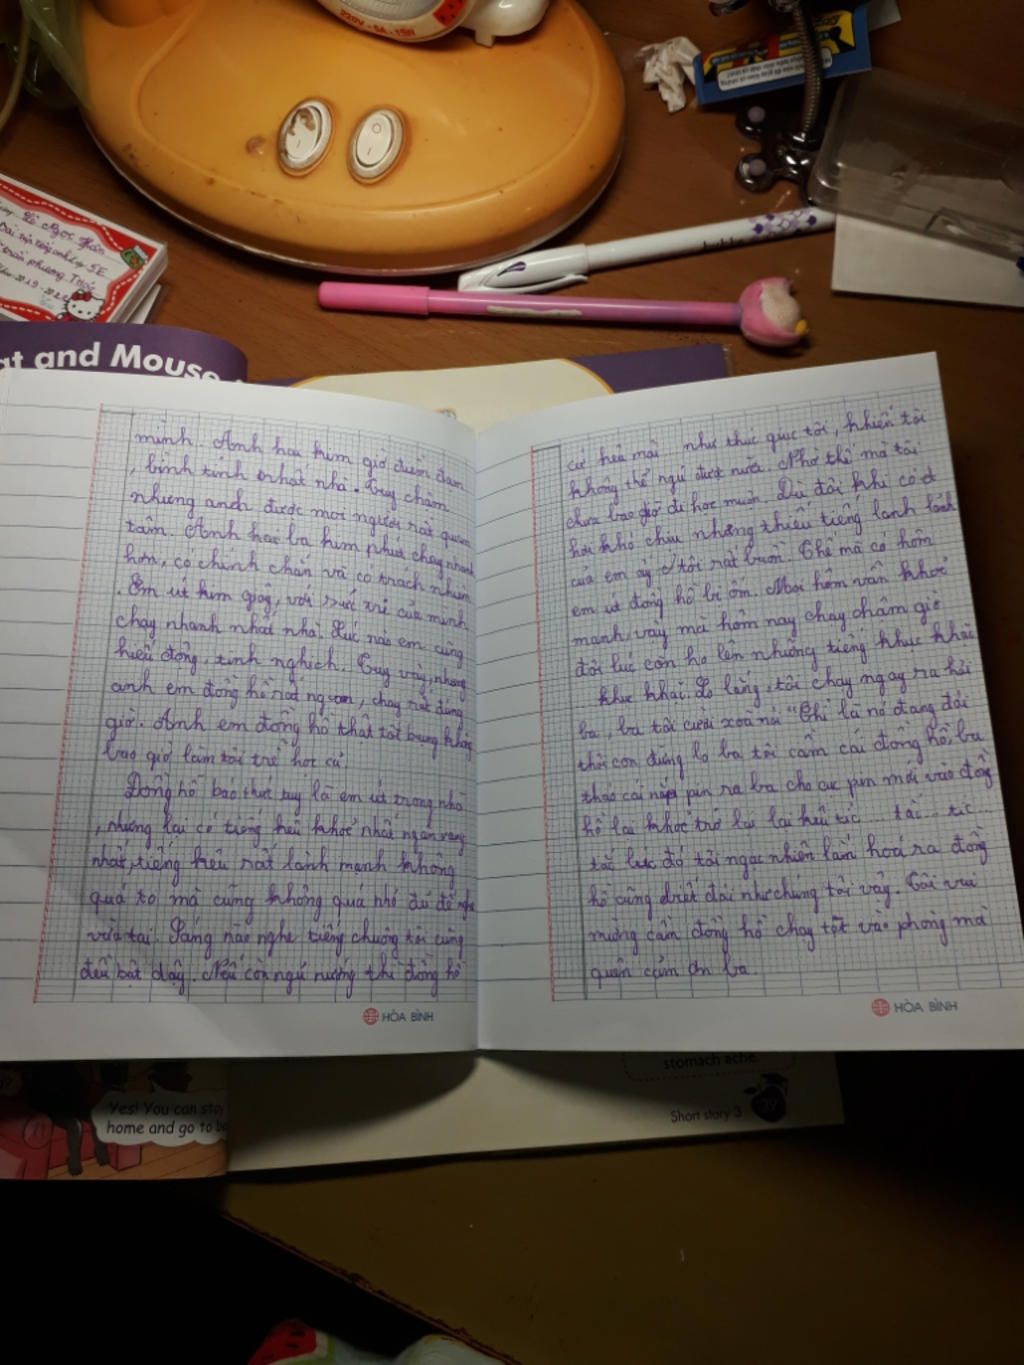 220V - 5A - 15W
Lê Ngọc Hân
5E
at and Mouse
mình. Anh hai kim giờ
, bình tĩnh nhất nhà. Tuy chậm
nhưng anh được mọi người rất quan
tâm. Anh hai ba kim phút chạy nhanh
hơn, có chính chắn và có trách nhiệm
. Em út kim giây, với sức trẻ của mình
chạy nhanh nhất nhà. Lúc nào em cũng
hiếu động, tinh nghịch. Tuy vậy, nhưng
anh em đồng hồ rất ngoan, chạy rất đúng
giờ. Anh em đồng hồ thật tốt bụng không
bao giờ làm tôi trễ học cả.
Đồng hồ báo thức tuy là em út trong nhà
, nhưng lại có tiếng kêu khoẻ nhất ngân vang
nhất, tiếng kêu rất lành mạnh không
quá to mà cũng không quá nhỏ đủ để nghe
vừa tai. Sáng nào nghe tiếng chuông tôi cũng
đều bật dậy. Nếu còn ngủ nướng thì đồng hồ
cứ kêu mãi như thúc giục tôi, khiến tôi
không thể ngủ được nữa. Nhờ thế mà tôi
chưa bao giờ đi học muộn. Dù đôi khi có
hơi khó chịu nhưng thiếu tiếng lanh lảnh
của em ấy tôi rất buồn. Thế mà có hôm
em út đồng hồ bị ốm. Mọi hôm vẫn khoẻ
mạnh vậy mà hôm nay chạy chậm giờ
đôi lúc còn ho lên những tiếng khục khặc
khục khặc. Lo lắng, tôi chạy ngay ra hỏi
ba, ba tôi cười xoà nói "Chỉ là nó đang đói
thôi con đừng lo ba tôi cầm cái đồng hồ, ba
tháo cái nắp pin ra ba cho cục pin mới vào đồng
hồ lại khoẻ trở lại lại kêu tíc .... tắc ... tíc ....
tắc lúc đó tôi ngạc nhiên lắm hoá ra đồng
hồ cũng biết đói như chúng tôi vậy. Tôi vui
mừng cầm đồng hồ chạy tọt vào phòng mà
quên cảm ơn ba.
HÒA BÌNH
HÒA BÌNH
stomach ache.
Short story 3
Yes! You can stay
home and go to be